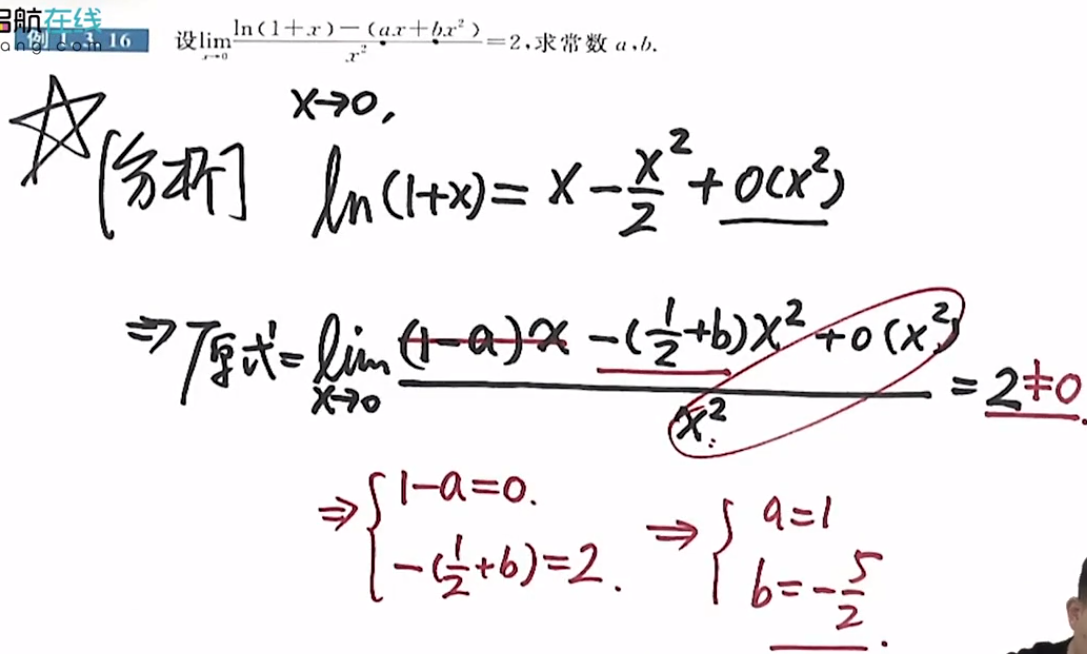 启航在线
ang.com
例 1.3.16 设lim x→0 ln(1+x)-(ax+bx²) / x² =2,求常数 a,b.
x→0,
[分析] ln(1+x)=x-x²/2+o(x²)
⇒ 原式=lim x→0 (1-a)x-(1/2+b)x²+o(x²) / x² =2≠0.
⇒ { 1-a=0. -(1/2+b)=2. ⇒ { a=1 b=-5/2.